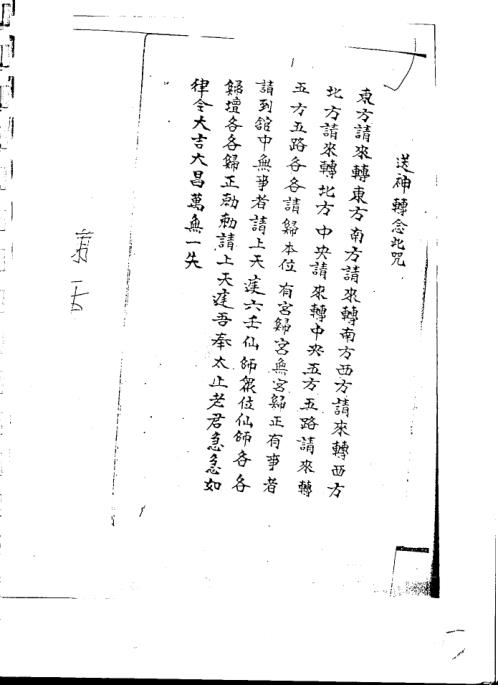 送神轉念此咒
東方請來轉東方南方請來轉南方西方請來轉西方
北方請來轉北方中央請來轉中央五方五路請來轉
五方五路各各請歸本位有宮歸宮無宮歸正有事者
請到舘中無事者請上天蓬六壬仙師眾位仙師各各
歸壇各各歸正勅勅請上天蓬吾奉太上老君急急如
律令大吉大昌萬無一失